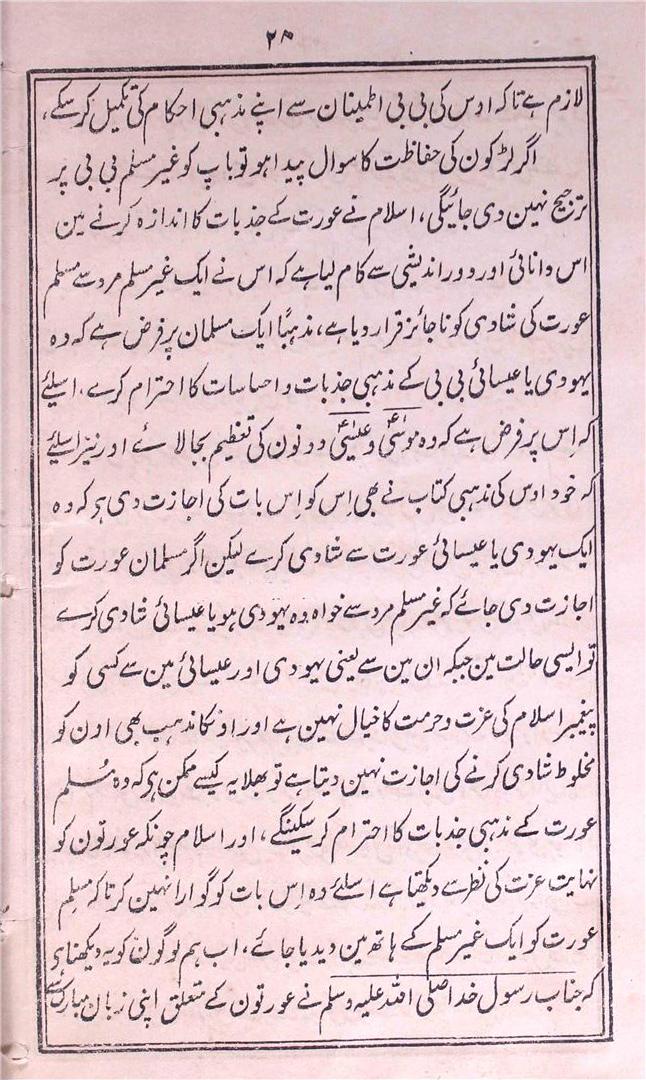 ۲۸
لازم ہے تاکہ اوس کی بی بی اطمینان سے اپنے مذہبی احکام کی تکمیل کر سکے،
اگر لڑکون کی حفاظت کا سوال پیدا ہو تو باپ کو غیر مسلم بی بی پر
ترجیح نہین دی جائیگی، اسلام نے عورت کے جذبات کا اندازہ کرنے مین
اس دانائی اور دور اندیشی سے کام لیا ہے کہ اس نے ایک غیر مسلم مرد سے مسلم
عورت کی شادی کو ناجائز قرار دیا ہے، مذہبًا ایک مسلمان پر فرض ہے کہ وہ
یہودی یا عیسائی بی بی کے مذہبی جذبات و احساسات کا احترام کرے، اسلئے
کہ اِس پر فرض ہے کہ وہ موسیٰؑ و عیسیٰؑ دونون کی تعظیم بجا لائے اور نیز اسلیے
کہ خود اوس کی مذہبی کتاب نے بھی اِس کو اِس بات کی اجازت دی ہو کہ وہ
ایک یہودی یا عیسائی عورت سے شادی کرے لیکن اگر مسلمان عورت کو
اجازت دی جائے کہ غیر مسلم مرد سے خواہ وہ یہودی ہو یا عیسائی شادی کرے
تو ایسی حالت مین جبکہ ان مین سے یعنی یہودی اور عیسائی مین سے کسی کو
پیغمبر اسلام کی عزت و حرمت کا خیال نہین ہے اور اونکا مذہب بھی اون کو
مخلوط شادی کرنے کی اجازت نہین دیتا ہے تو بھلا یہ کیسے ممکن ہو کہ وہ مُسلم
عورت کے مذہبی جذبات کا احترام کر سکینگے، اور اسلام چونکہ عورتون کو
نہایت عزت کی نظر سے دیکھتا ہے اسلئے وہ اِس بات کو گوارا نہین کرتا کہ مسلم
عورت کو ایک غیر مسلم کے ہاتھ مین دیدیا جائے، اب ہم لوگون کو یہ دیکھنا ہو
کہ جناب رسول خدا صلی اللہ علیہ وسلم نے عورتون کے متعلق اپنی زبان مبارک سے